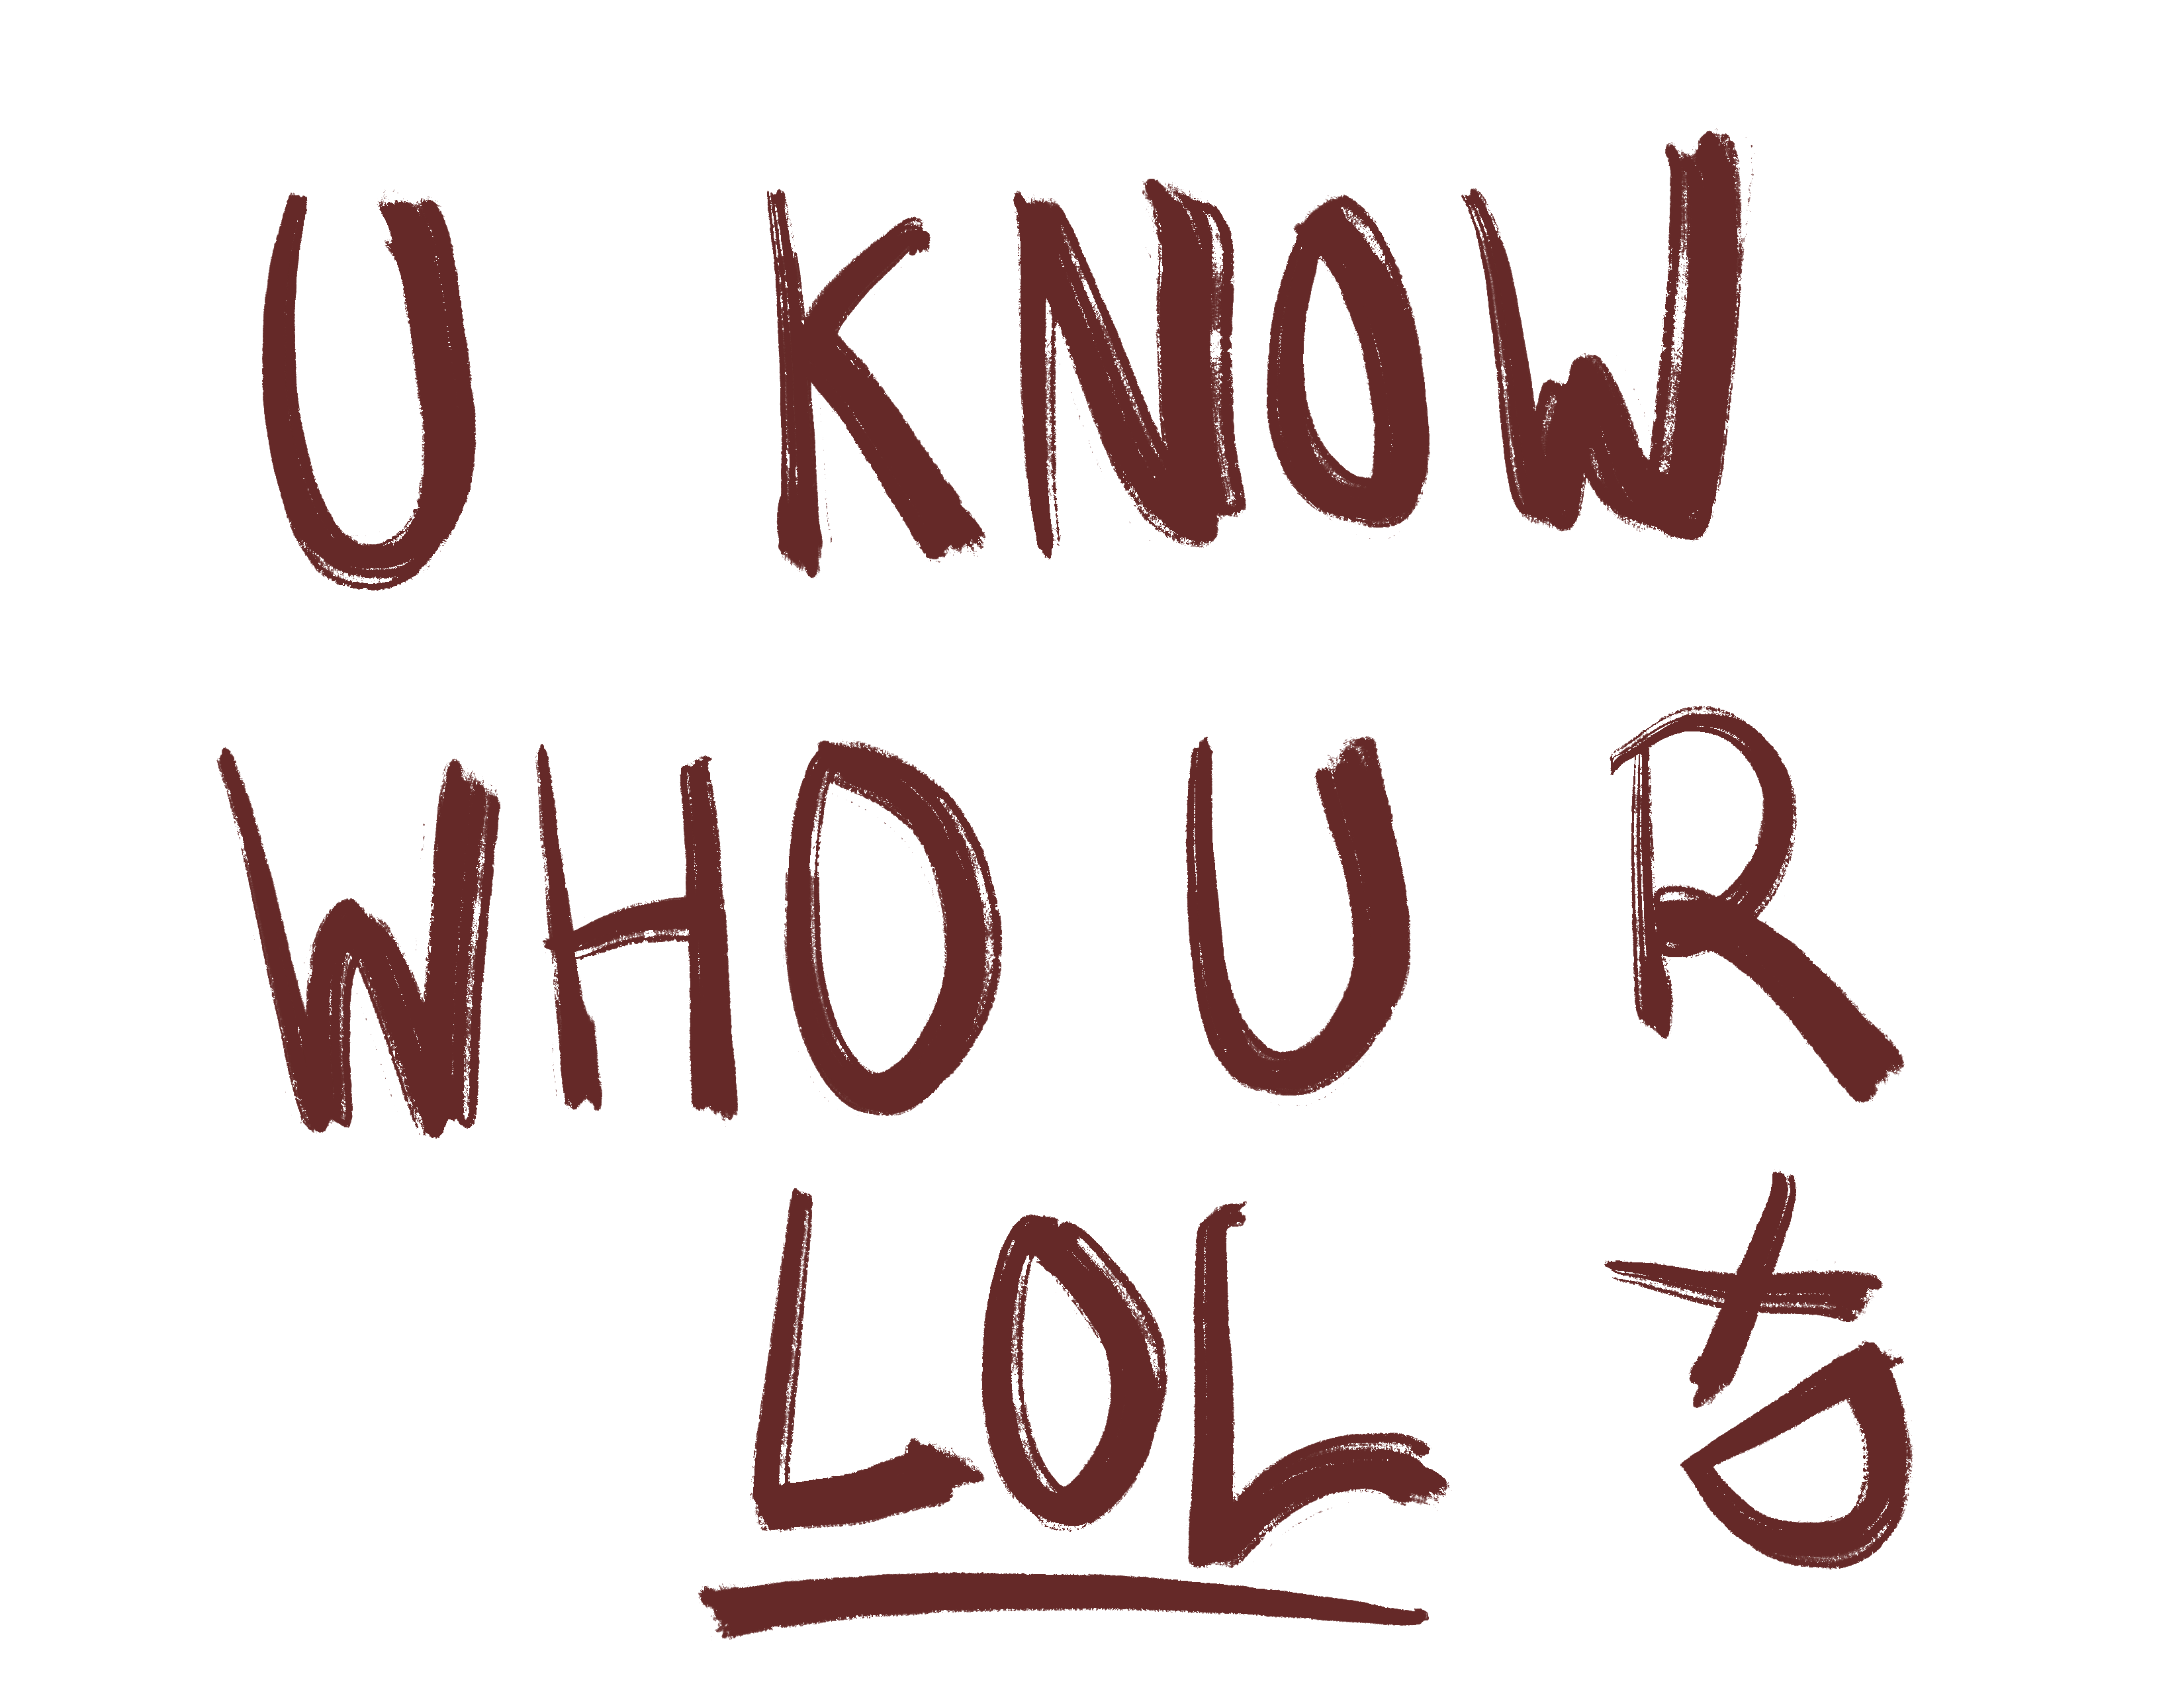 U KNOW
WHO U R
LOL